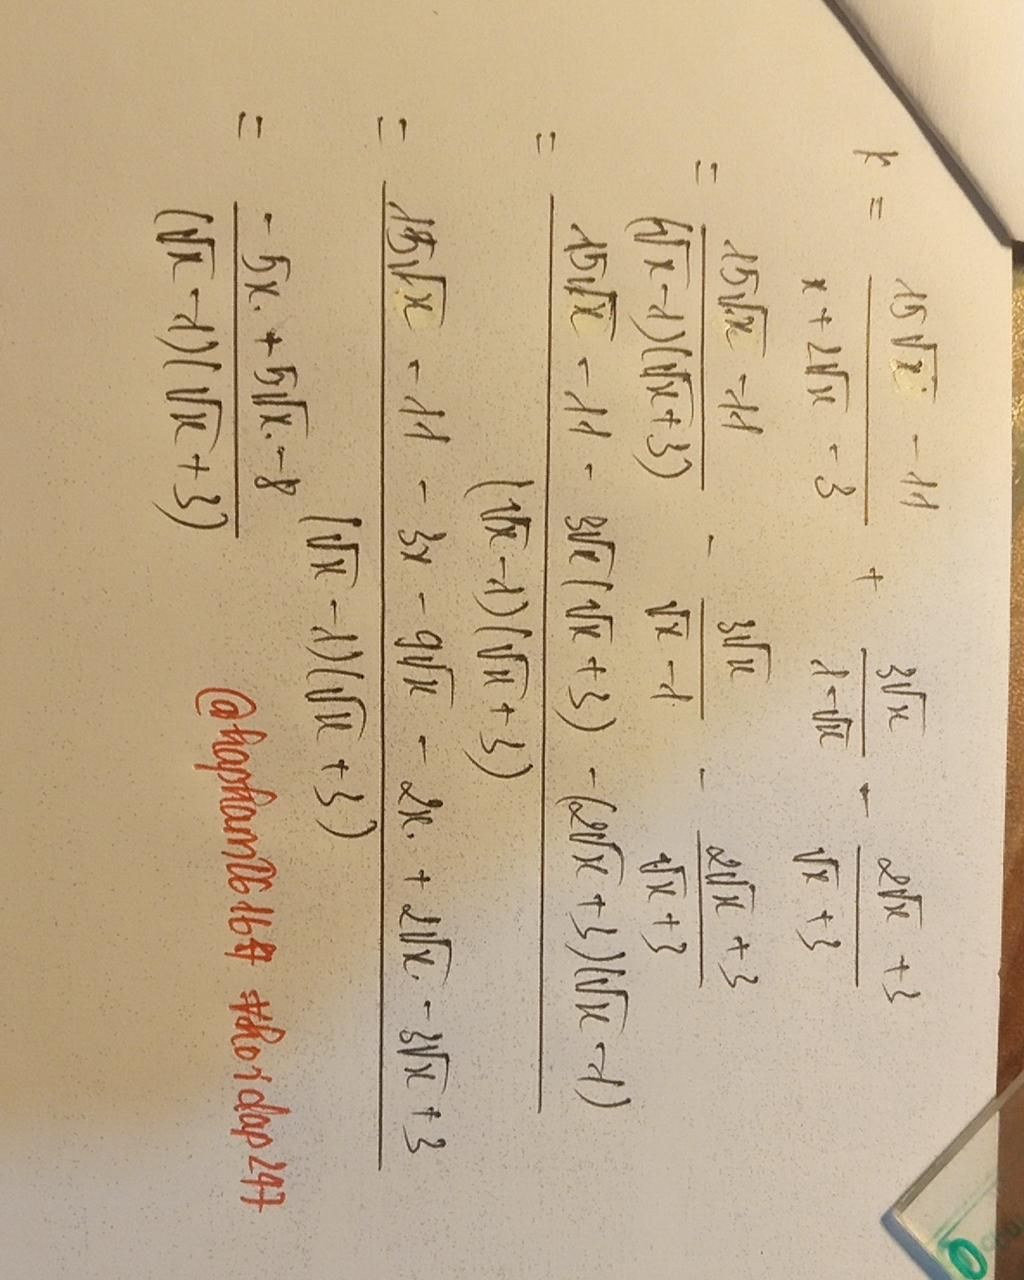 K = (15√x - 11)/(x + 2√x - 3) + 3√x/(1 - √x) - (2√x + 3)/(√x + 3)
= (15√x - 11)/((√x - 1)(√x + 3)) - 3√x/(√x - 1) - (2√x + 3)/(√x + 3)
= (15√x - 11 - 3√x(√x + 3) - (2√x + 3)(√x - 1))/((√x - 1)(√x + 3))
= (15√x - 11 - 3x - 9√x - 2x + 2√x - 3√x + 3)/((√x - 1)(√x + 3))
= (-5x + 5√x - 8)/((√x - 1)(√x + 3))
@hapham26164 #hoidap247